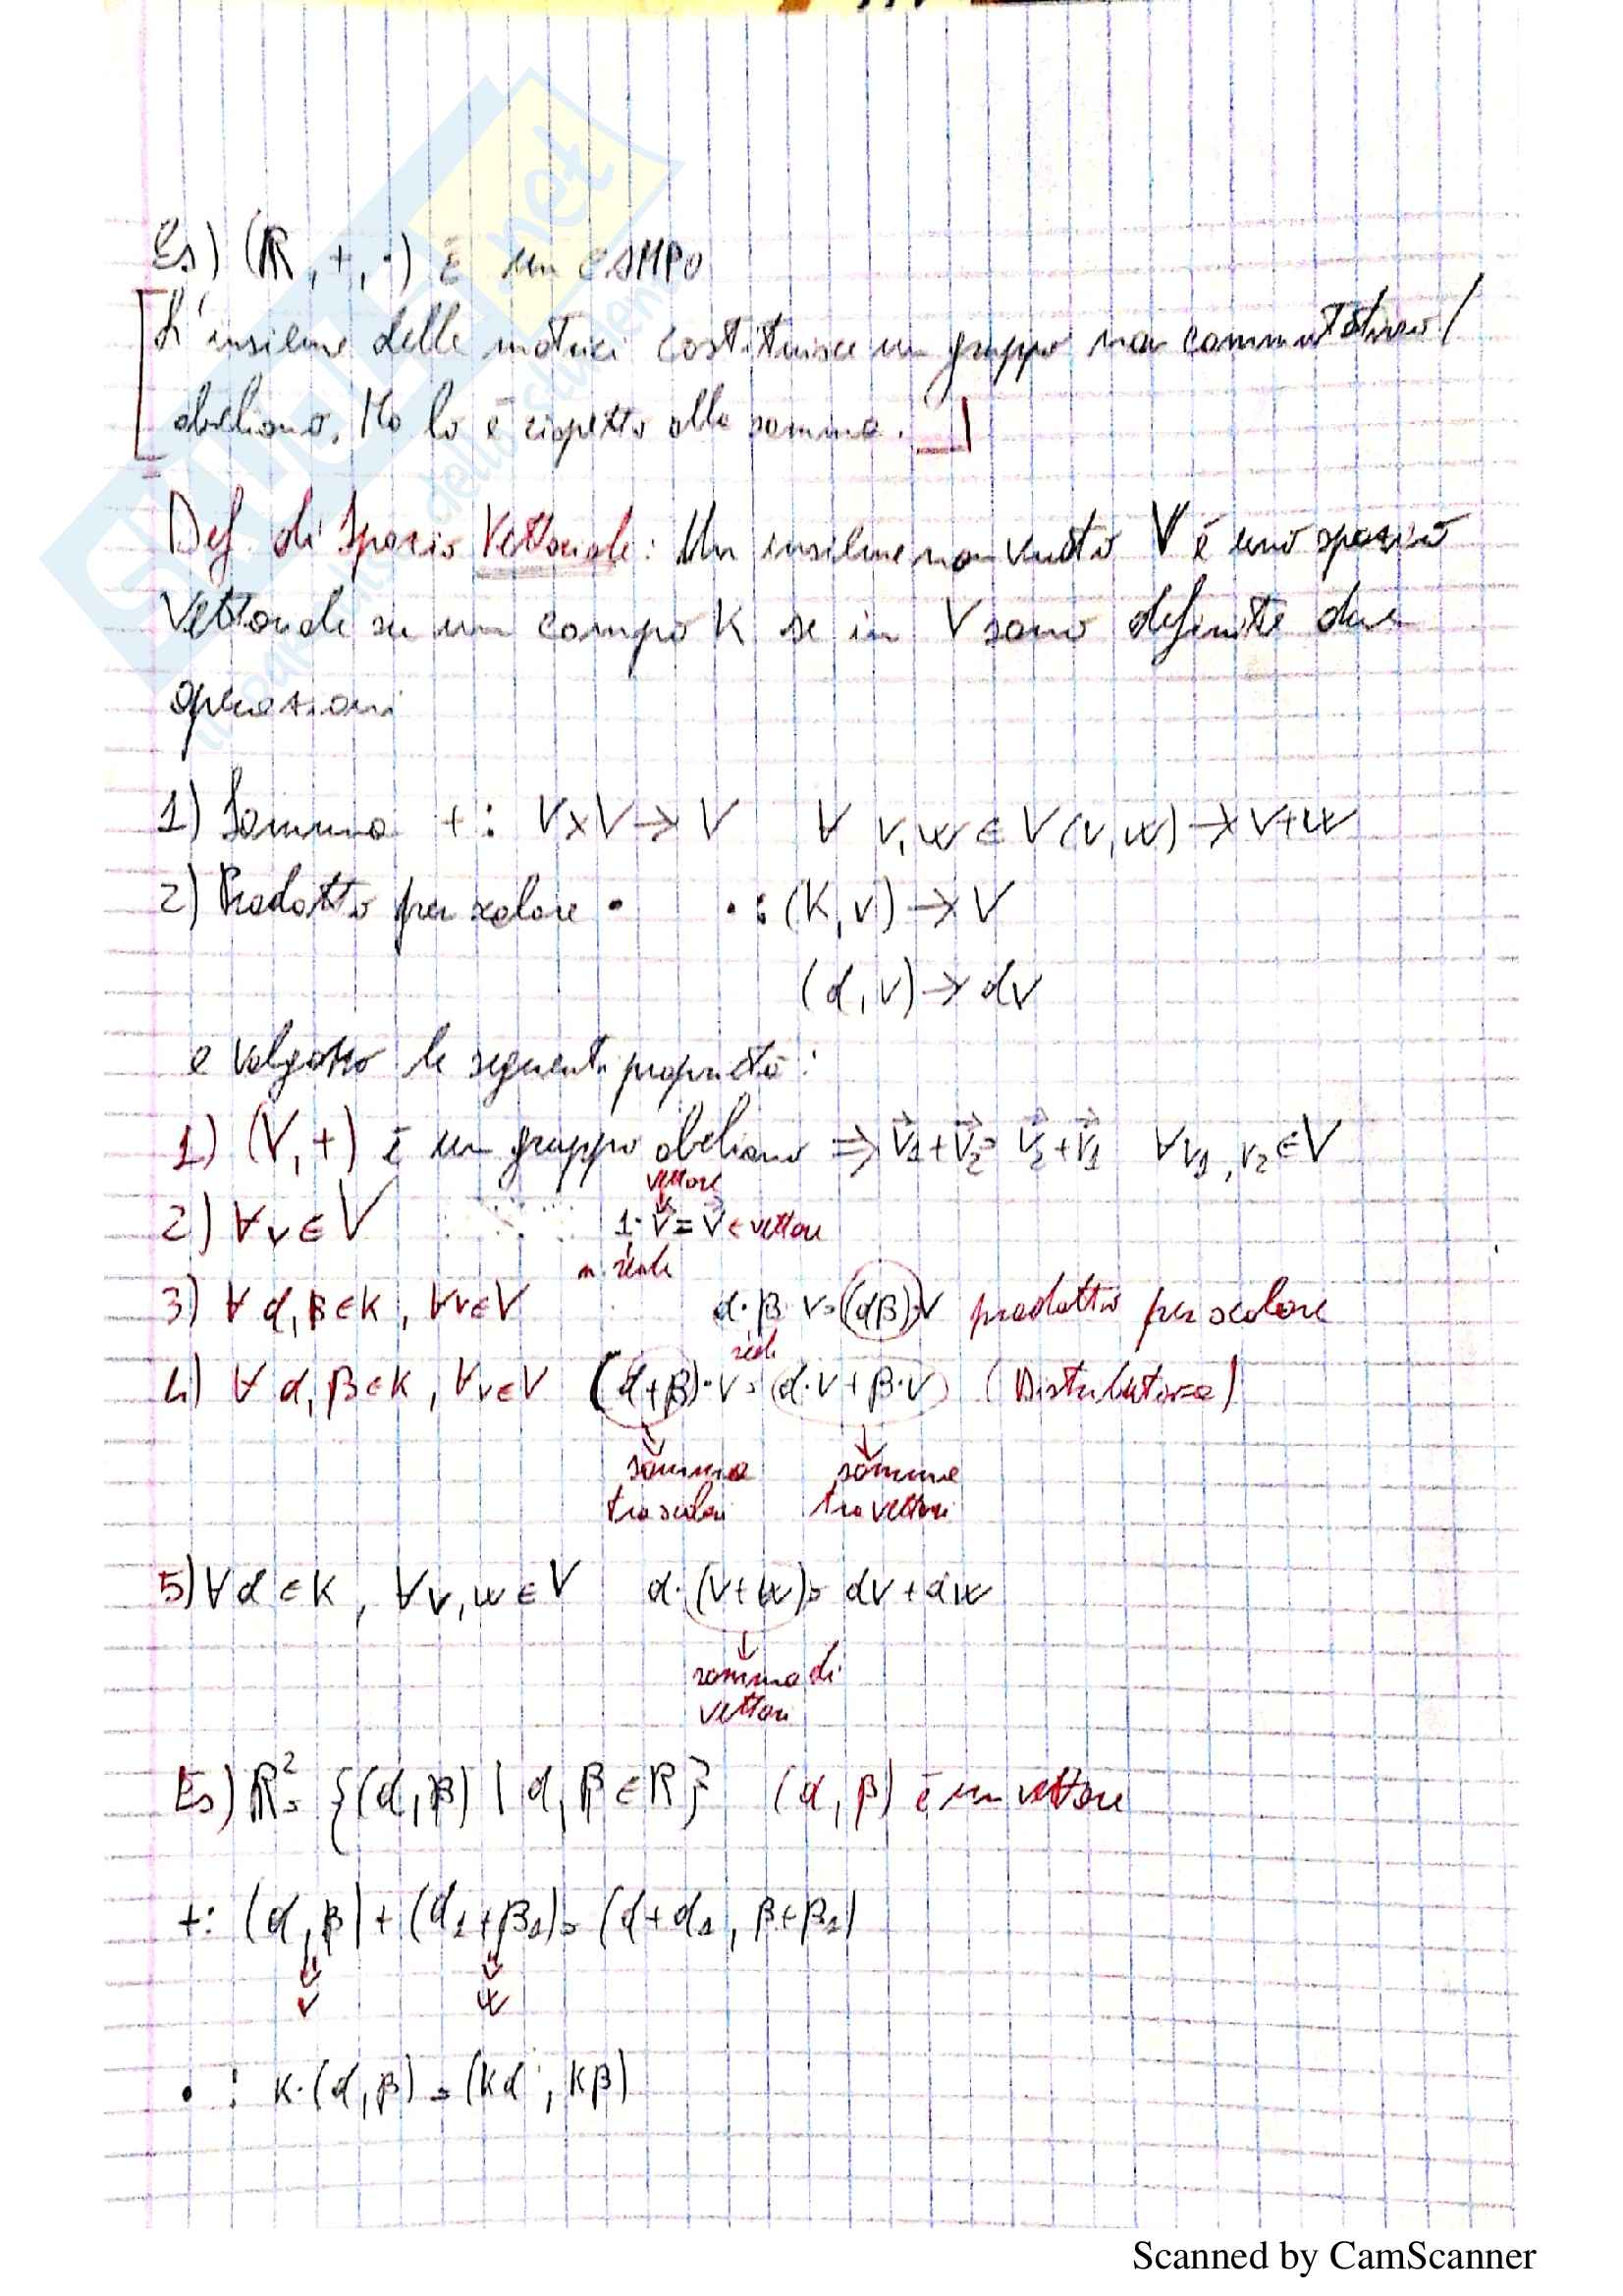 Es) (ℝ, +, ·) è un CAMPO
L'insieme delle matrici costituisce un gruppo non commutativo/
abeliano. Ma lo è rispetto alla somma.
Def. di Spazio Vettoriale: Un insieme non vuoto V è uno spazio
Vettoriale su un campo K se in V sono definite due
operazioni
1) Somma +: V×V → V ∀ v, w ∈ V (v, w) → v+w
2) Prodotto per scalare · · : (K, v) → V
(α, v) → αv
e valgono le seguenti proprietà:
1) (V, +) è un gruppo abeliano ⇒ v⃗₁+v⃗₂ = v⃗₂+v⃗₁ ∀v₁, v₂ ∈ V
vettore
2) ∀v ∈ V 1·v⃗ = v⃗ ← vettore
n. reale
3) ∀ α, β ∈ K, ∀v ∈ V α·β v = (αβ)·v prodotto per scalare
reale
4) ∀ α, β ∈ K, ∀v ∈ V (α+β)·v = α·v + β·v (Distributiva)
somma somma
tra scalari tra vettori
5) ∀α ∈ K, ∀v, w ∈ V α·(v+w) = αv + αw
somma di
vettori
Es) ℝ² = {(α, β) | α, β ∈ ℝ} (α, β) è un vettore
+: (α, β) + (α₁+β₁) = (α+α₁, β+β₁)
v w
· : K·(α, β) = (Kα, Kβ)
Scanned by CamScanner
SKUOLA.net
il portale dello studente